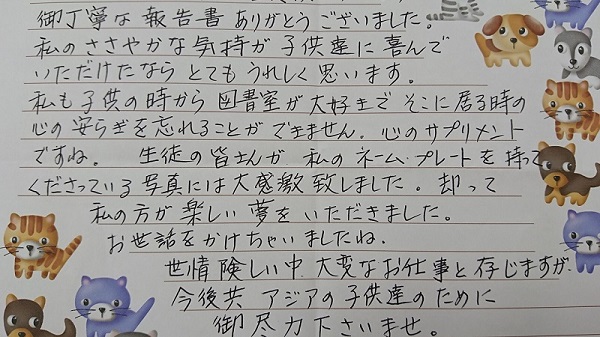 御丁寧な報告書ありがとうございました。
私のささやかな気持が子供達に喜んで
いただけたなら とてもうれしく思います。
私も子供の時から図書室が大好きで そこに居る時の
心の安らぎを忘れることができません。心のサプリメント
ですね。 生徒の皆さんが 私のネーム・プレートを持って
くださっている写真には大感激致しました。却って
私の方が楽しい夢をいただきました。
お世話をかけちゃいましたね。
世情険しい中 大変なお仕事と存じますが
今後共 アジアの子供達のために
御尽力下さいませ。